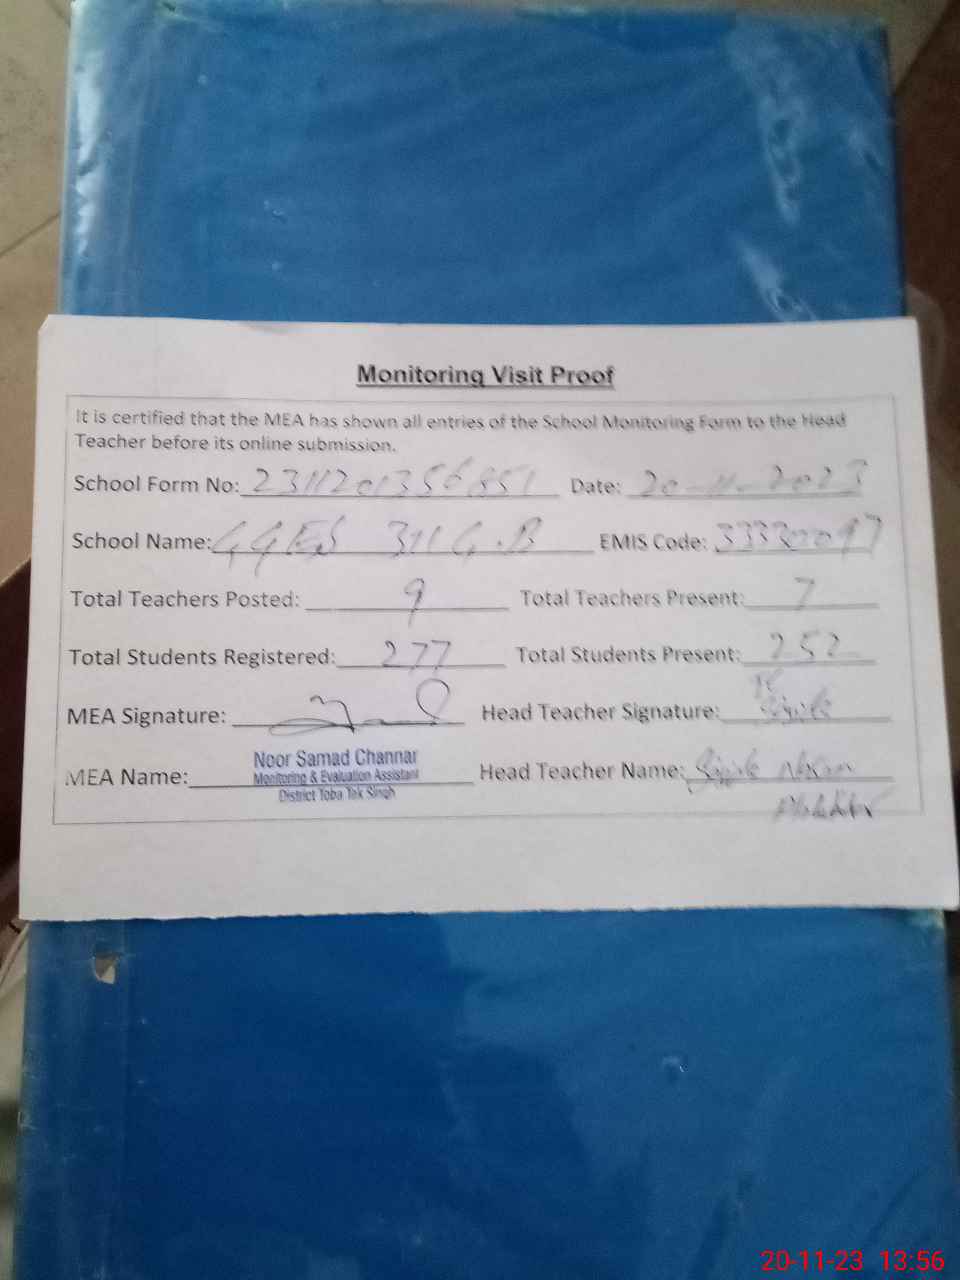 Monitoring Visit Proof
It is certified that the MEA has shown all entries of the School Monitoring Form to the Head
Teacher before its online submission.
School Form No: 2311201356851 Date: 20-11-2023
School Name: GGES 311 G.B EMIS Code: 33320097
Total Teachers Posted: 9 Total Teachers Present: 7
Total Students Registered: 277 Total Students Present: 252
MEA Signature: Head Teacher Signature:
MEA Name: Noor Samad Channar Head Teacher Name:
Monitoring & Evaluation Assistant
District Toba Tek Singh
20-11-23 13:56